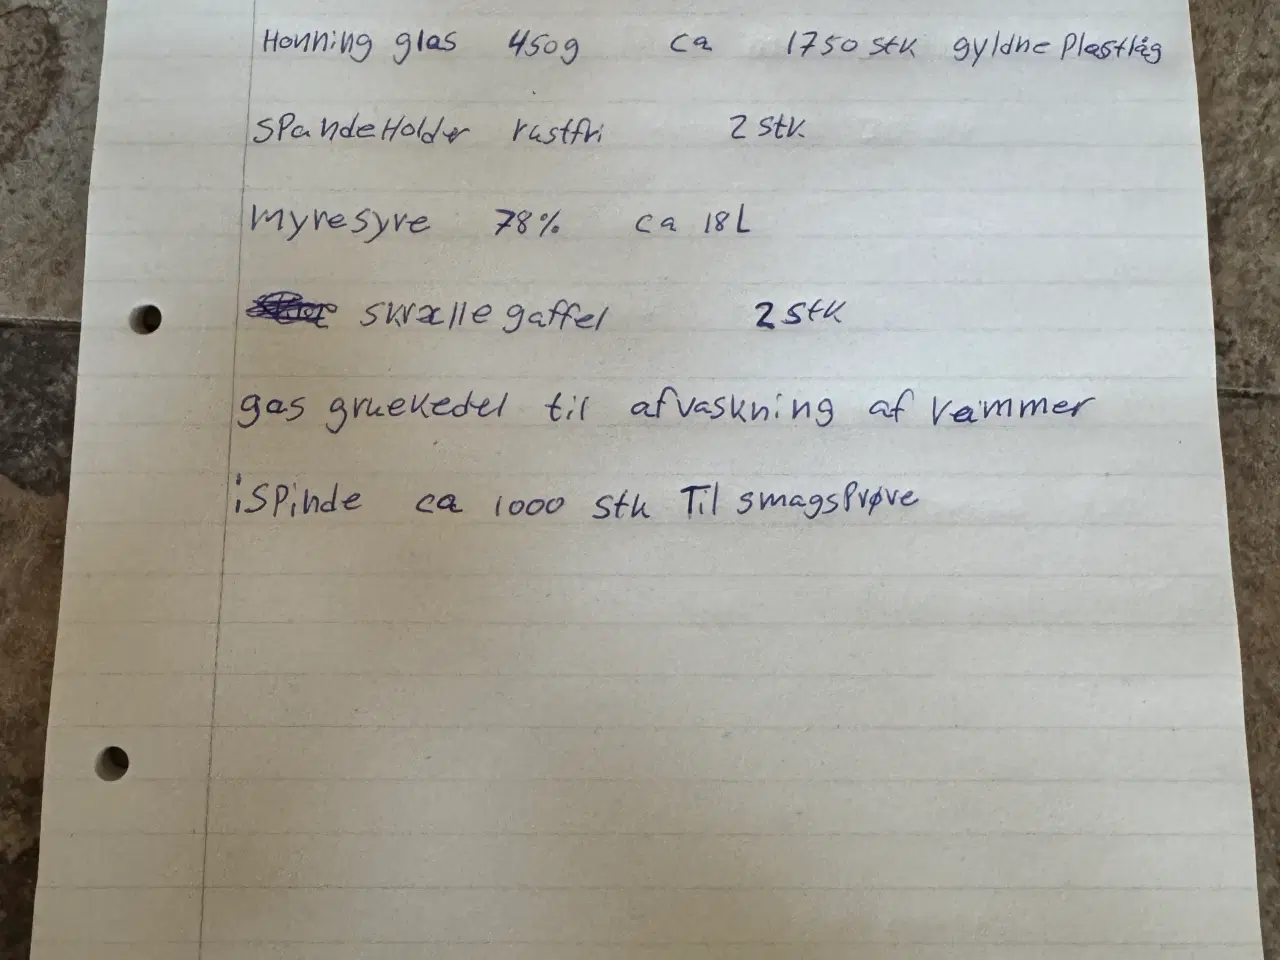 Honning glas 450g ca 1750 stk gyldne Plastlåg
SPandeHolder rustfri 2 stk.
Myresyre 78% ca 18L
skrælle gaffel 2 stk
gas gruekedel til afvaskning af rammer
iSPinde ca 1000 stk Til smagsPrøve